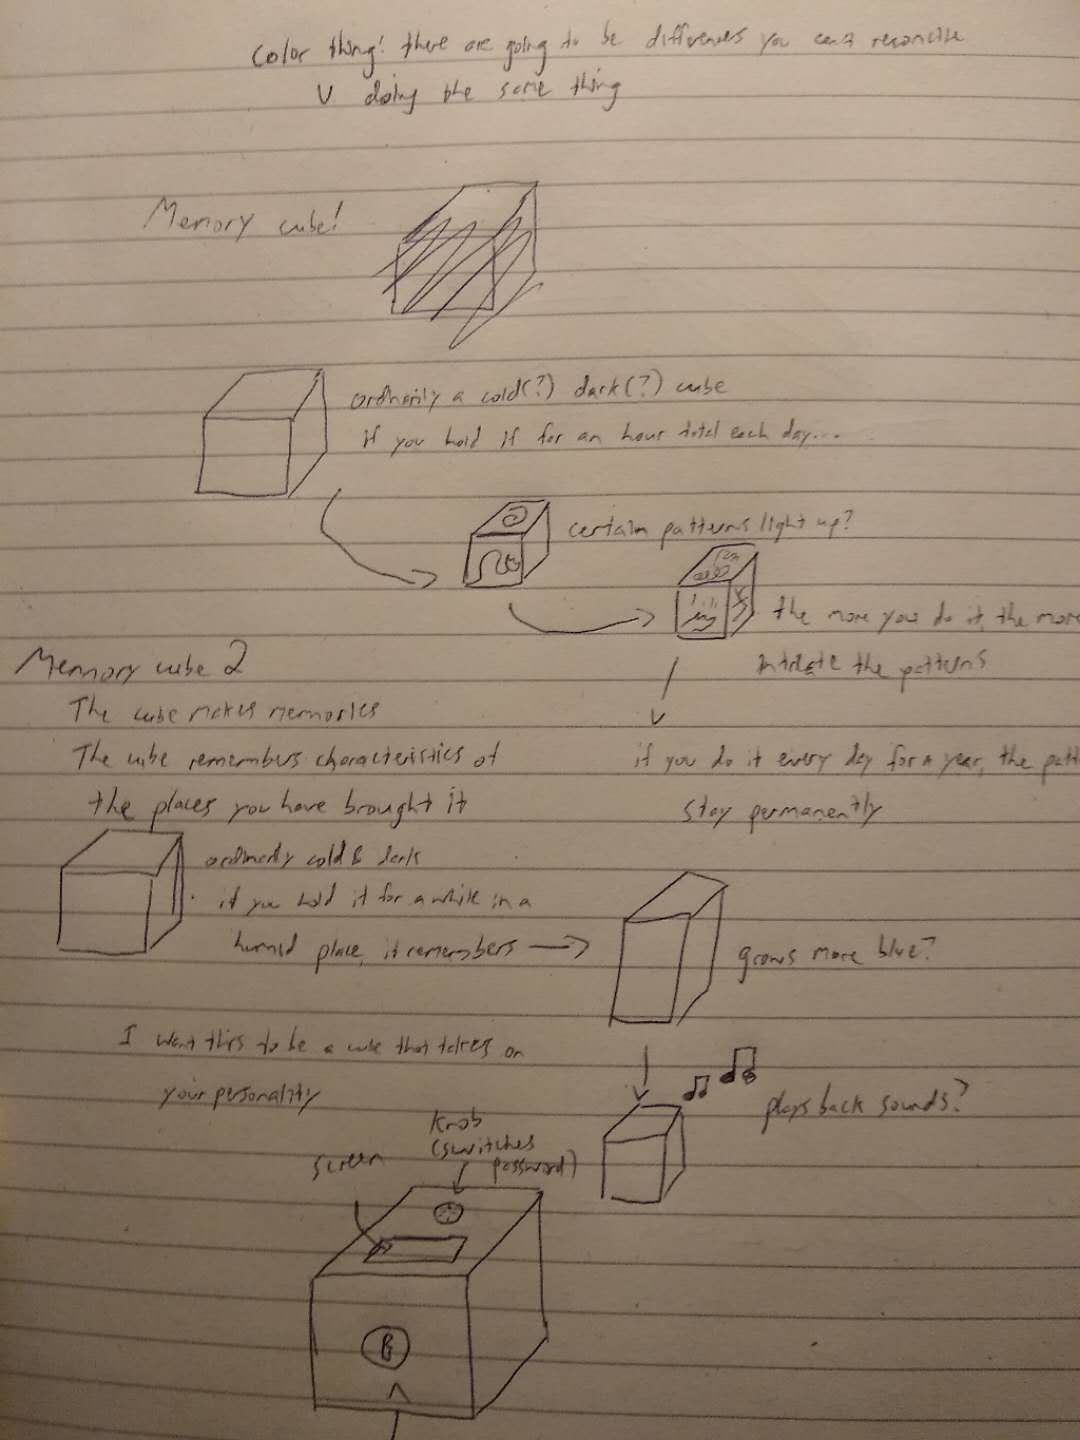 Color thing! there are going to be differences you can't reconcile
V doing the same thing
Memory cube!
ordinarily a cold(?) dark(?) cube
if you hold it for an hour total each day...
certain patterns light up?
the more you do it, the more
intricate the patterns
if you do it every day for a year, the patt
stay permanently
Memory cube 2
The cube makes memories
The cube remembers characteristics of
the places you have brought it
ordinarily cold & dark
if you hold it for a while in a
humid place, it remembers
grows more blue?
plays back sounds?
I want this to be a cube that takes on
your personality
screen
knob
(switches
password)
B